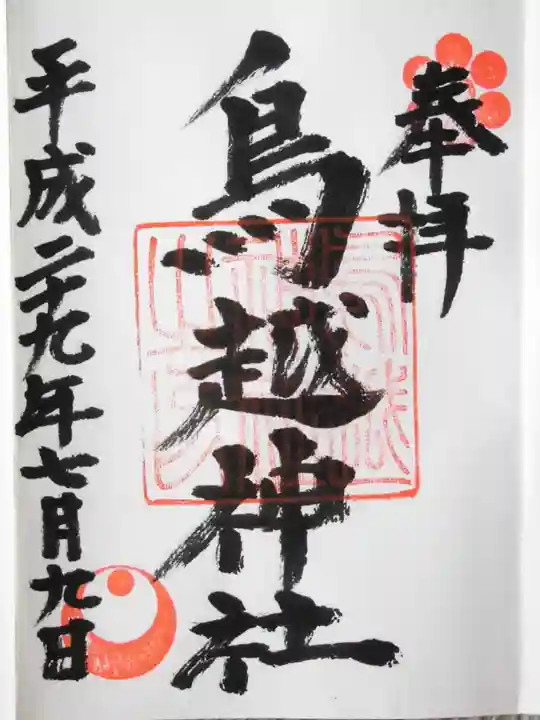 奉拝
鳥越神社
平成二十九年七月九日